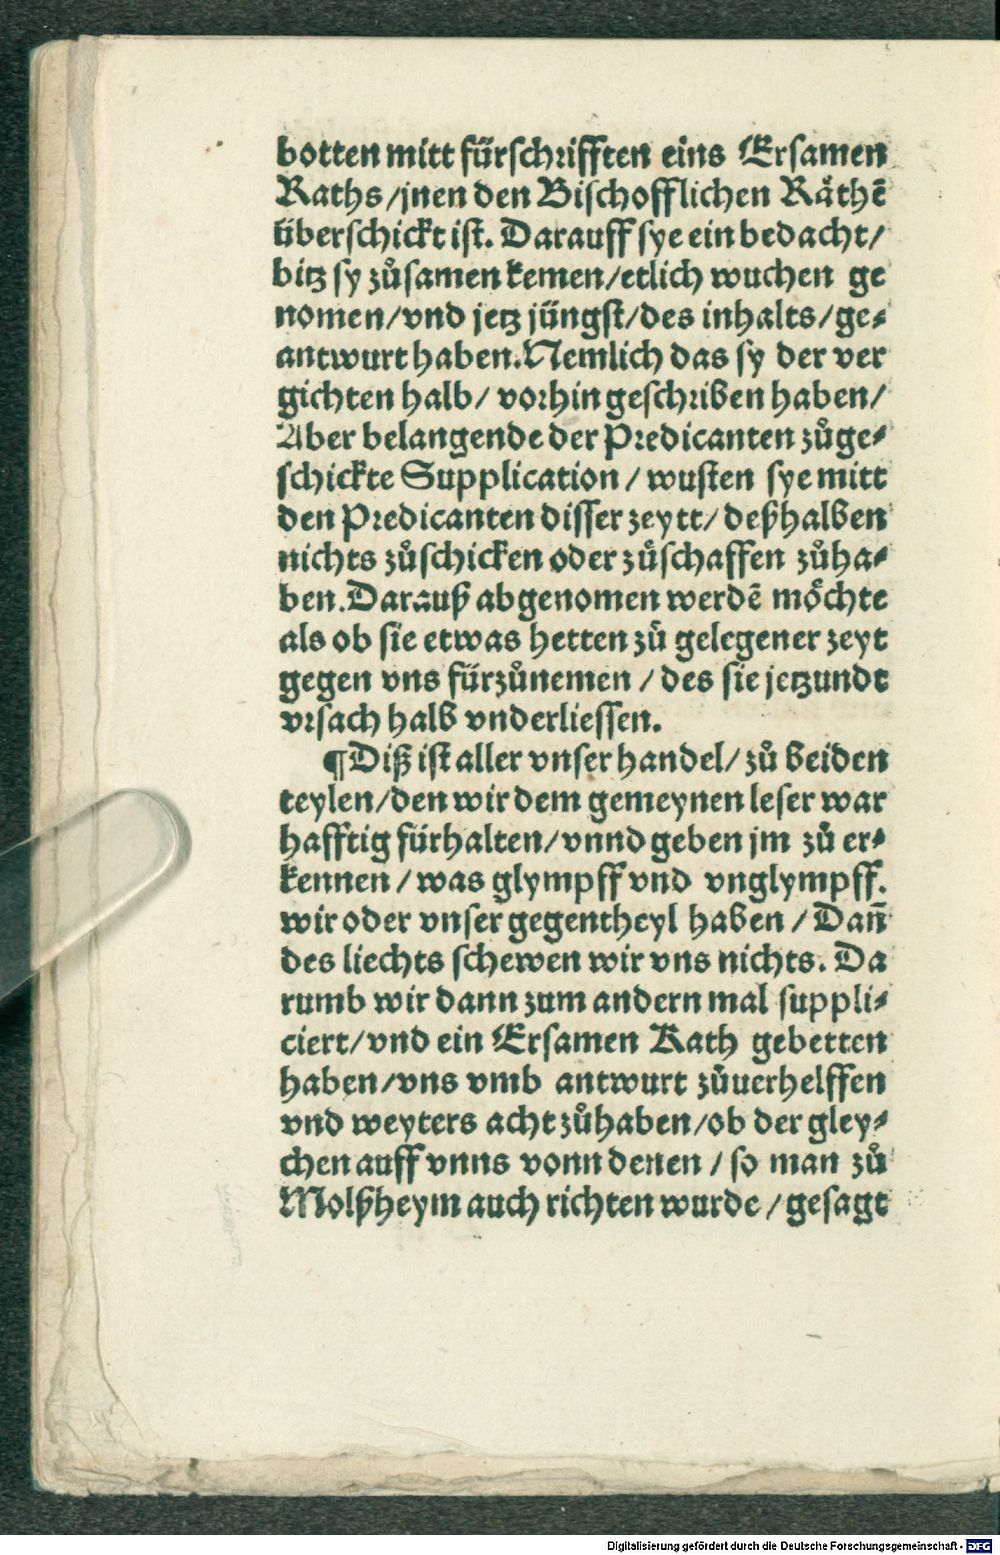 botten mitt fürschrifften eins Ersamen
Raths/jnen den Bischofflichen Räthē
überschickt ist. Darauff sye ein bedacht/
bitz sy zůsamen kemen/etlich wuchen ge
nomen/vnd jetz jüngst/des inhalts/ge⸗
antwurt haben. Nemlich das sy der ver
gichten halb/ vorhin geschriben haben/
Aber belangende der Predicanten zůge⸗
schickte Supplication/ wusten sye mitt
den Predicanten disser zeytt/ deßhalben
nichts zůschicken oder zůschaffen zůha⸗
ben. Darauß abgenomen werdē möchte
als ob sie etwas hetten zů gelegener zeyt
gegen vns fürzůnemen/ des sie jetzundt
vrsach halb vnderliessen.
¶ Diß ist aller vnser handel/ zů beiden
teylen/den wir dem gemeynen leser war
hafftig fürhalten/vnnd geben jm zů er⸗
kennen/ was glympff vnd vnglympff.
wir oder vnser gegentheyl haben/ Dañ
des liechts schewen wir vns nichts. Da
rumb wir dann zum andern mal suppli⸗
ciert/vnd ein Ersamen Rath gebetten
haben/vns vmb antwurt zůuerhelffen
vnd weyters acht zůhaben/ob der gley⸗
chen auff vnns vonn denen/ so man zů
Molßheym auch richten wurde/ gesagt
Digitalisierung gefördert durch die Deutsche Forschungsgemeinschaft - DFG